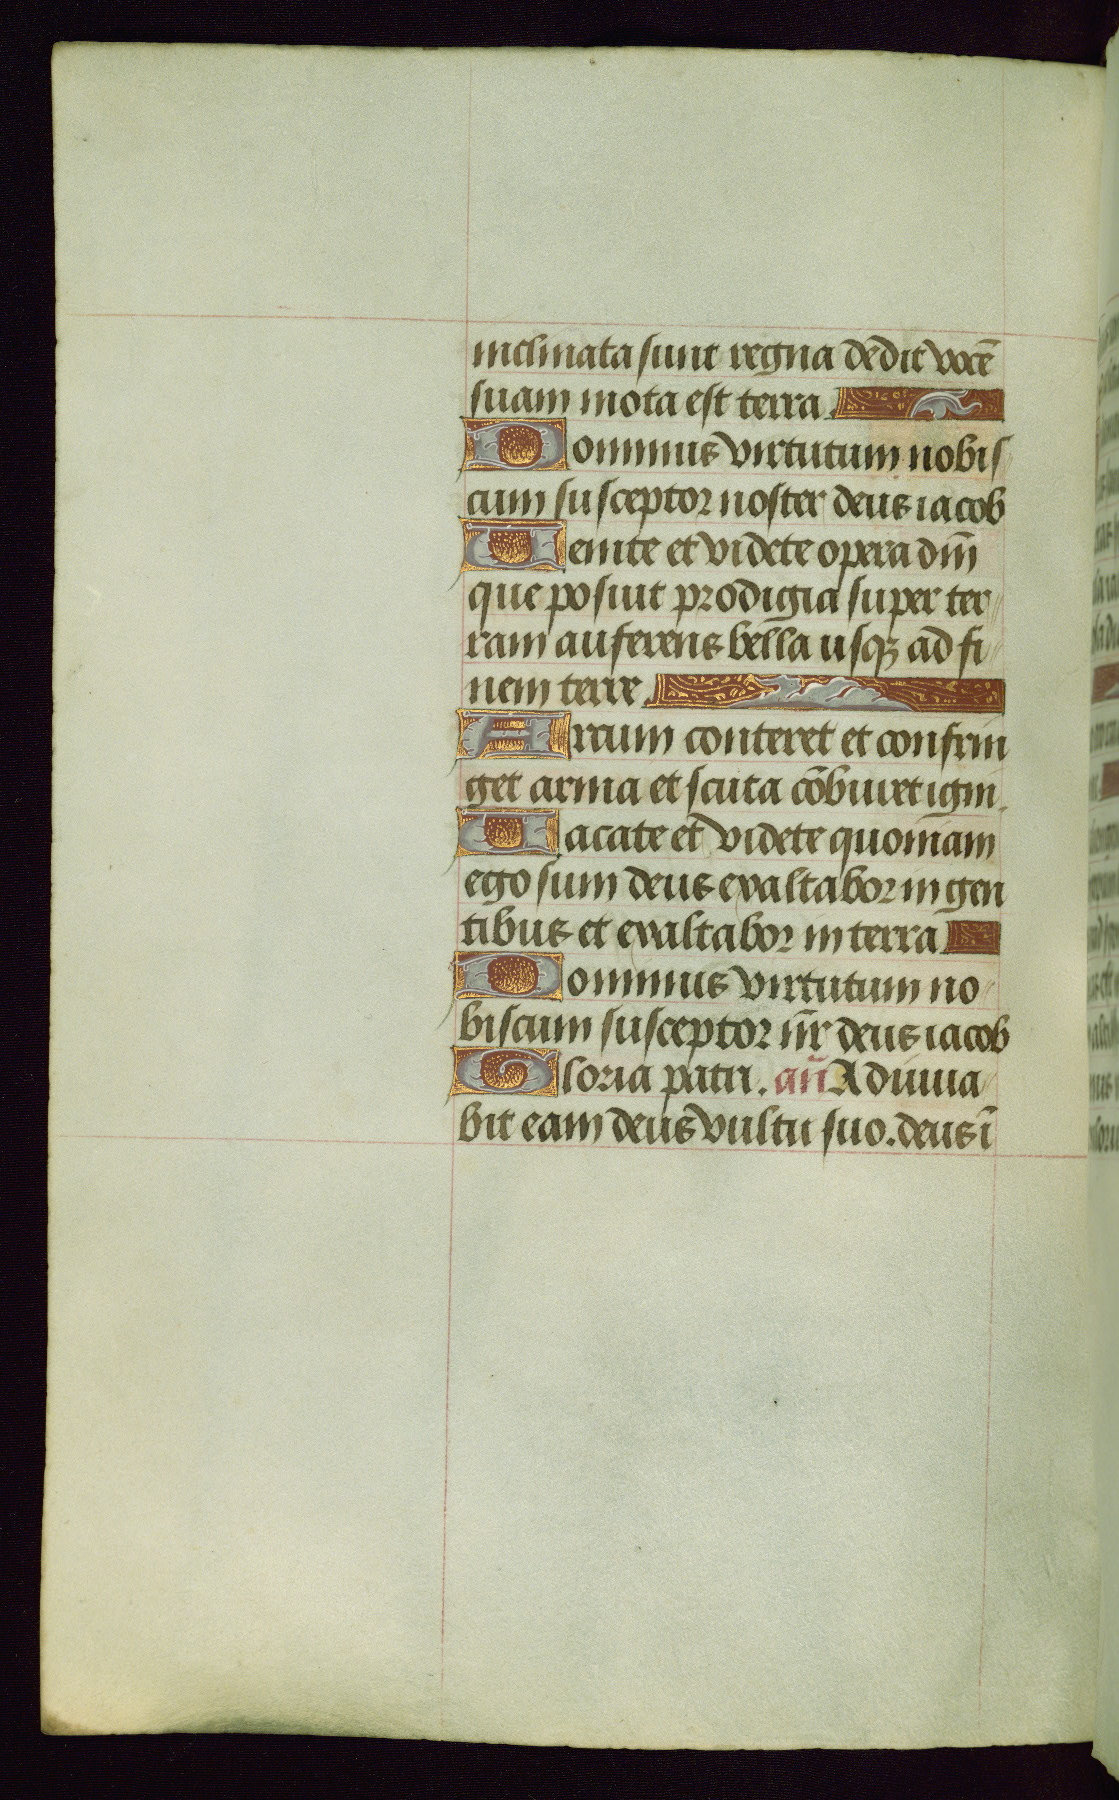 inclinata sunt regna dedit vocē
suam mota est terra.
Dominus virtutum nobis
cum susceptor noster deus iacob
Uenite et videte opera dm̄
que posiut prodigia super ter
ram auferens bella usq; ad fi
nem terre.
Arcum conteret et confrin
get arma et scuta cōburet igni.
Uacate et videte quoniam
ego sum deus exaltabor in gen
tibus et exaltabor in terra
Dominus virtutum no
biscum susceptor nr̄ deus iacob
Gloria patri. añ Adiuua
bit eam deus vultu suo. deus ī